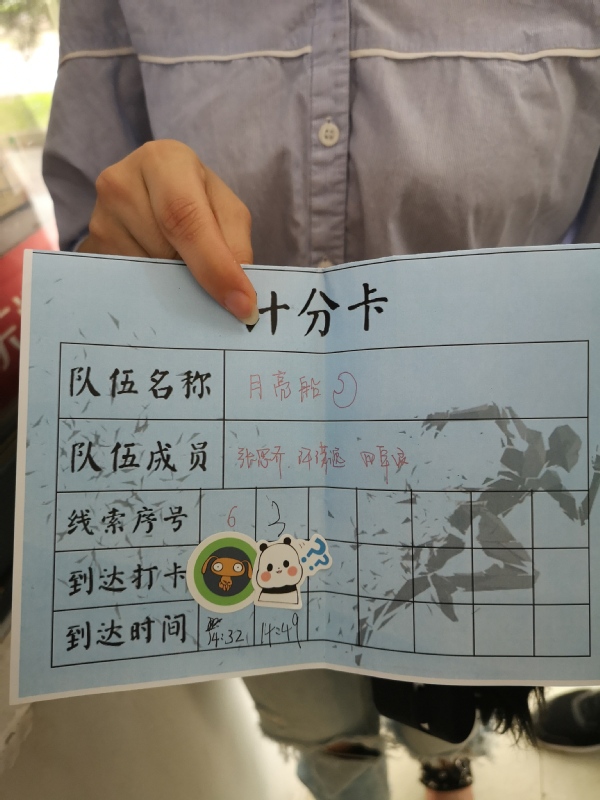 计分卡
队伍名称 月亮船
队伍成员
线索序号 6 3
到达打卡 ??
到达时间 14:32 14:49